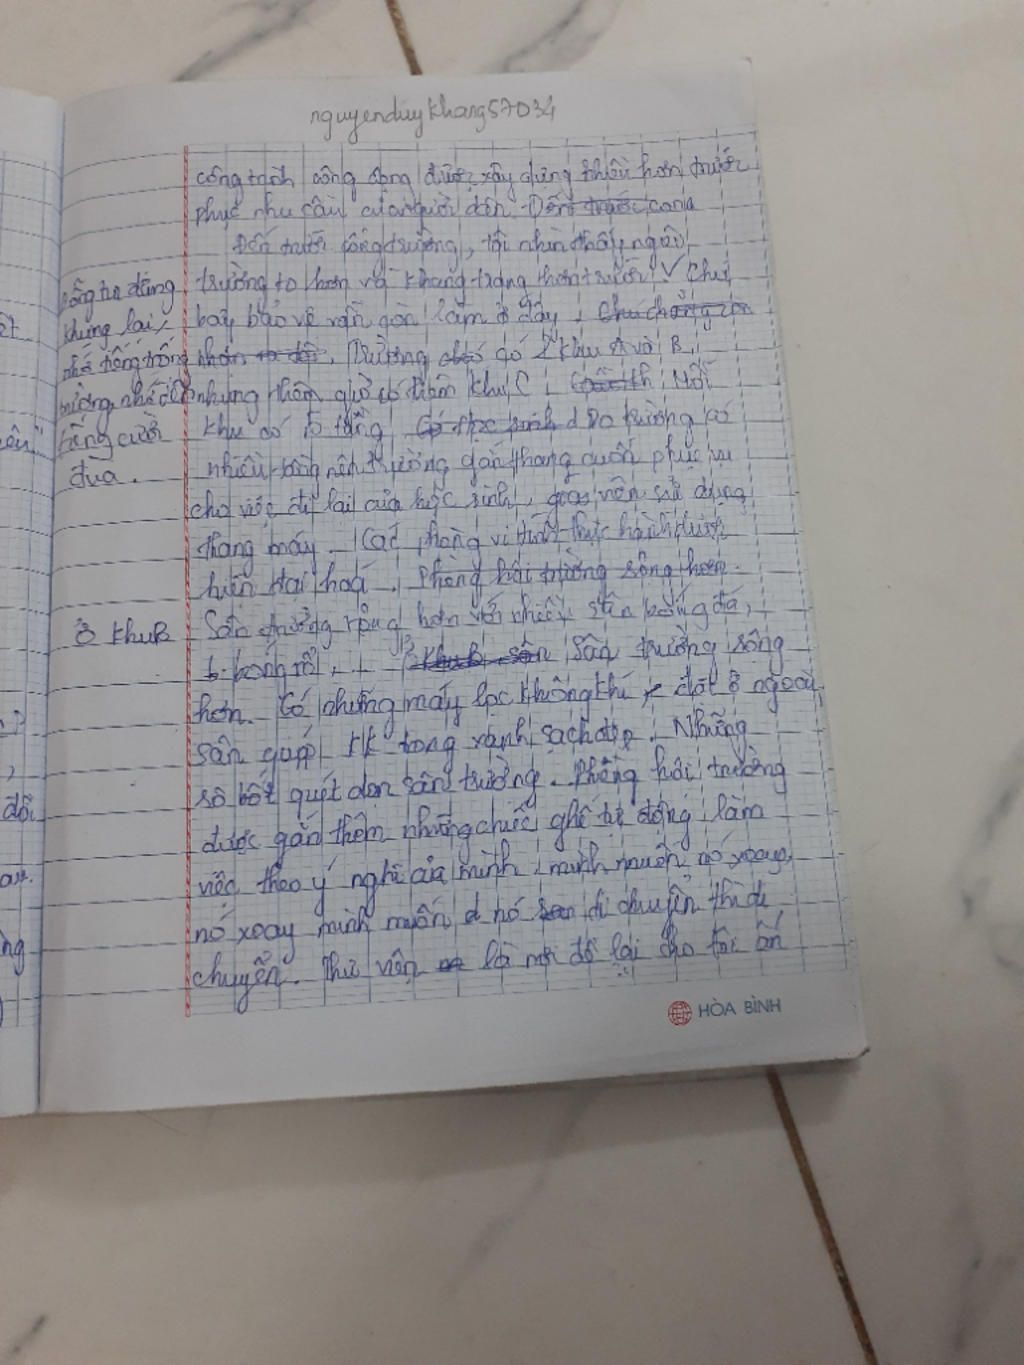 nguyenduykhang57034
công trình công cộng được xây dựng nhiều hơn trước
phục nhu cầu của người dân.
Đến trước cổng trường, tôi nhìn thấy ngôi
trường to hơn và khang trang hơn trước. Chú
bảo vệ vẫn còn làm ở đây,
Trường có 2 khu A và B,
nhưng giờ có thêm khu C. Mỗi
khu có 5 tầng. Do trường có
nhiều tầng nên trường gắn thang cuốn phục vụ
cho việc đi lại của học sinh, giáo viên sử dụng
thang máy. Các phòng vi tính, thực hành được
hiện đại hoá. Phòng hội trường rộng hơn.
Sân trường rộng hơn với nhiều sân bóng đá,
bóng rổ, sân trường rộng
hơn. Có những máy lọc không khí đặt ở ngoài
sân giúp kk trong xanh, sạch đẹp. Những
rô bốt quét dọn sân trường. Phòng hội trường
được gắn thêm những chiếc ghế tự động làm
việc theo ý nghĩ của mình, mình muốn nó xoay,
nó xoay mình muốn nó di chuyển thì di
chuyển. Thư viện là nơi để lại cho tôi ấn
cổng tự động
khựng lại,
nhớ tiếng trống
trường, nhớ
tiếng cười
đùa.
ở khu B
HÒA BÌNH